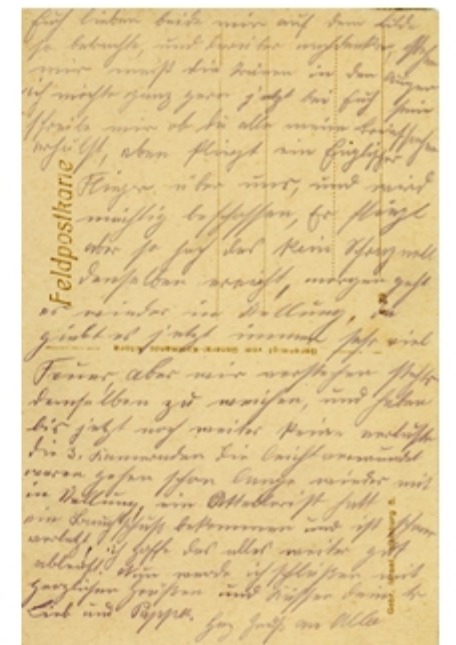 Euch lieben beide mir auf dem Bilde
so betrachte, und darüber nachdenke, stehn
mir meist die Tränen in den Augen
ich möchte ganz gern jetzt bei Euch sein
schreibe mir ob du alle meine
erhälst, eben fliegt ein Englischer
Flieger über uns, und wird
mächtig beschossen, Er fliegt
aber so hoch das kein Schrapnell
denselben erreicht, morgen geht
es wieder in Stellung, da
giebt es jetzt immer sehr viel
Feuer, aber wir verstehen stehts
demselben zu weichen, und haben
bis jetzt noch weiter keine verluste
die 3. Kameraden die leicht verwundet
waren gehen schon lange wieder mit
in Stellung, ein Artillerist hatt
ein Bauchschuß bekommen und ist schwer
verletzt, ich hoffe das alles weiter gut
abläuft. Nun werde ich schließen mit
herzlichen Grüßen und Küssen dein
Lieb und Pappa. Grüße an Alle
Feldpostkarte